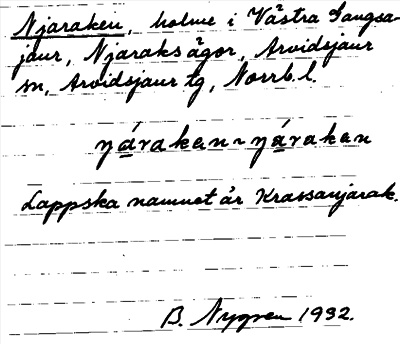 Njaraken, holme i Västra Laugsa-
jaur, Njaraks ägor, Arvidsjaur
sn, Arvidsjaur tg, Norrb. l.
ŋárakan ~ ŋárakan
Lappska namnet är Krassanjarak.
B. Nygren 1932.